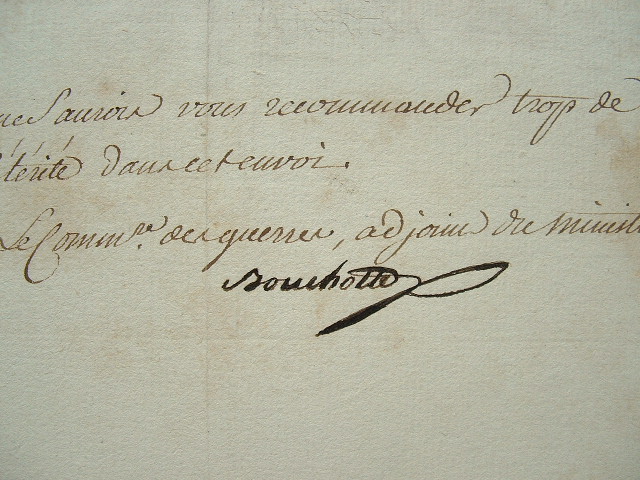 ne Saurois vous recommander trop de
lérité dans cet envoi.
Le Comm.re des guerres, adjoint du Minist
Bouchotte